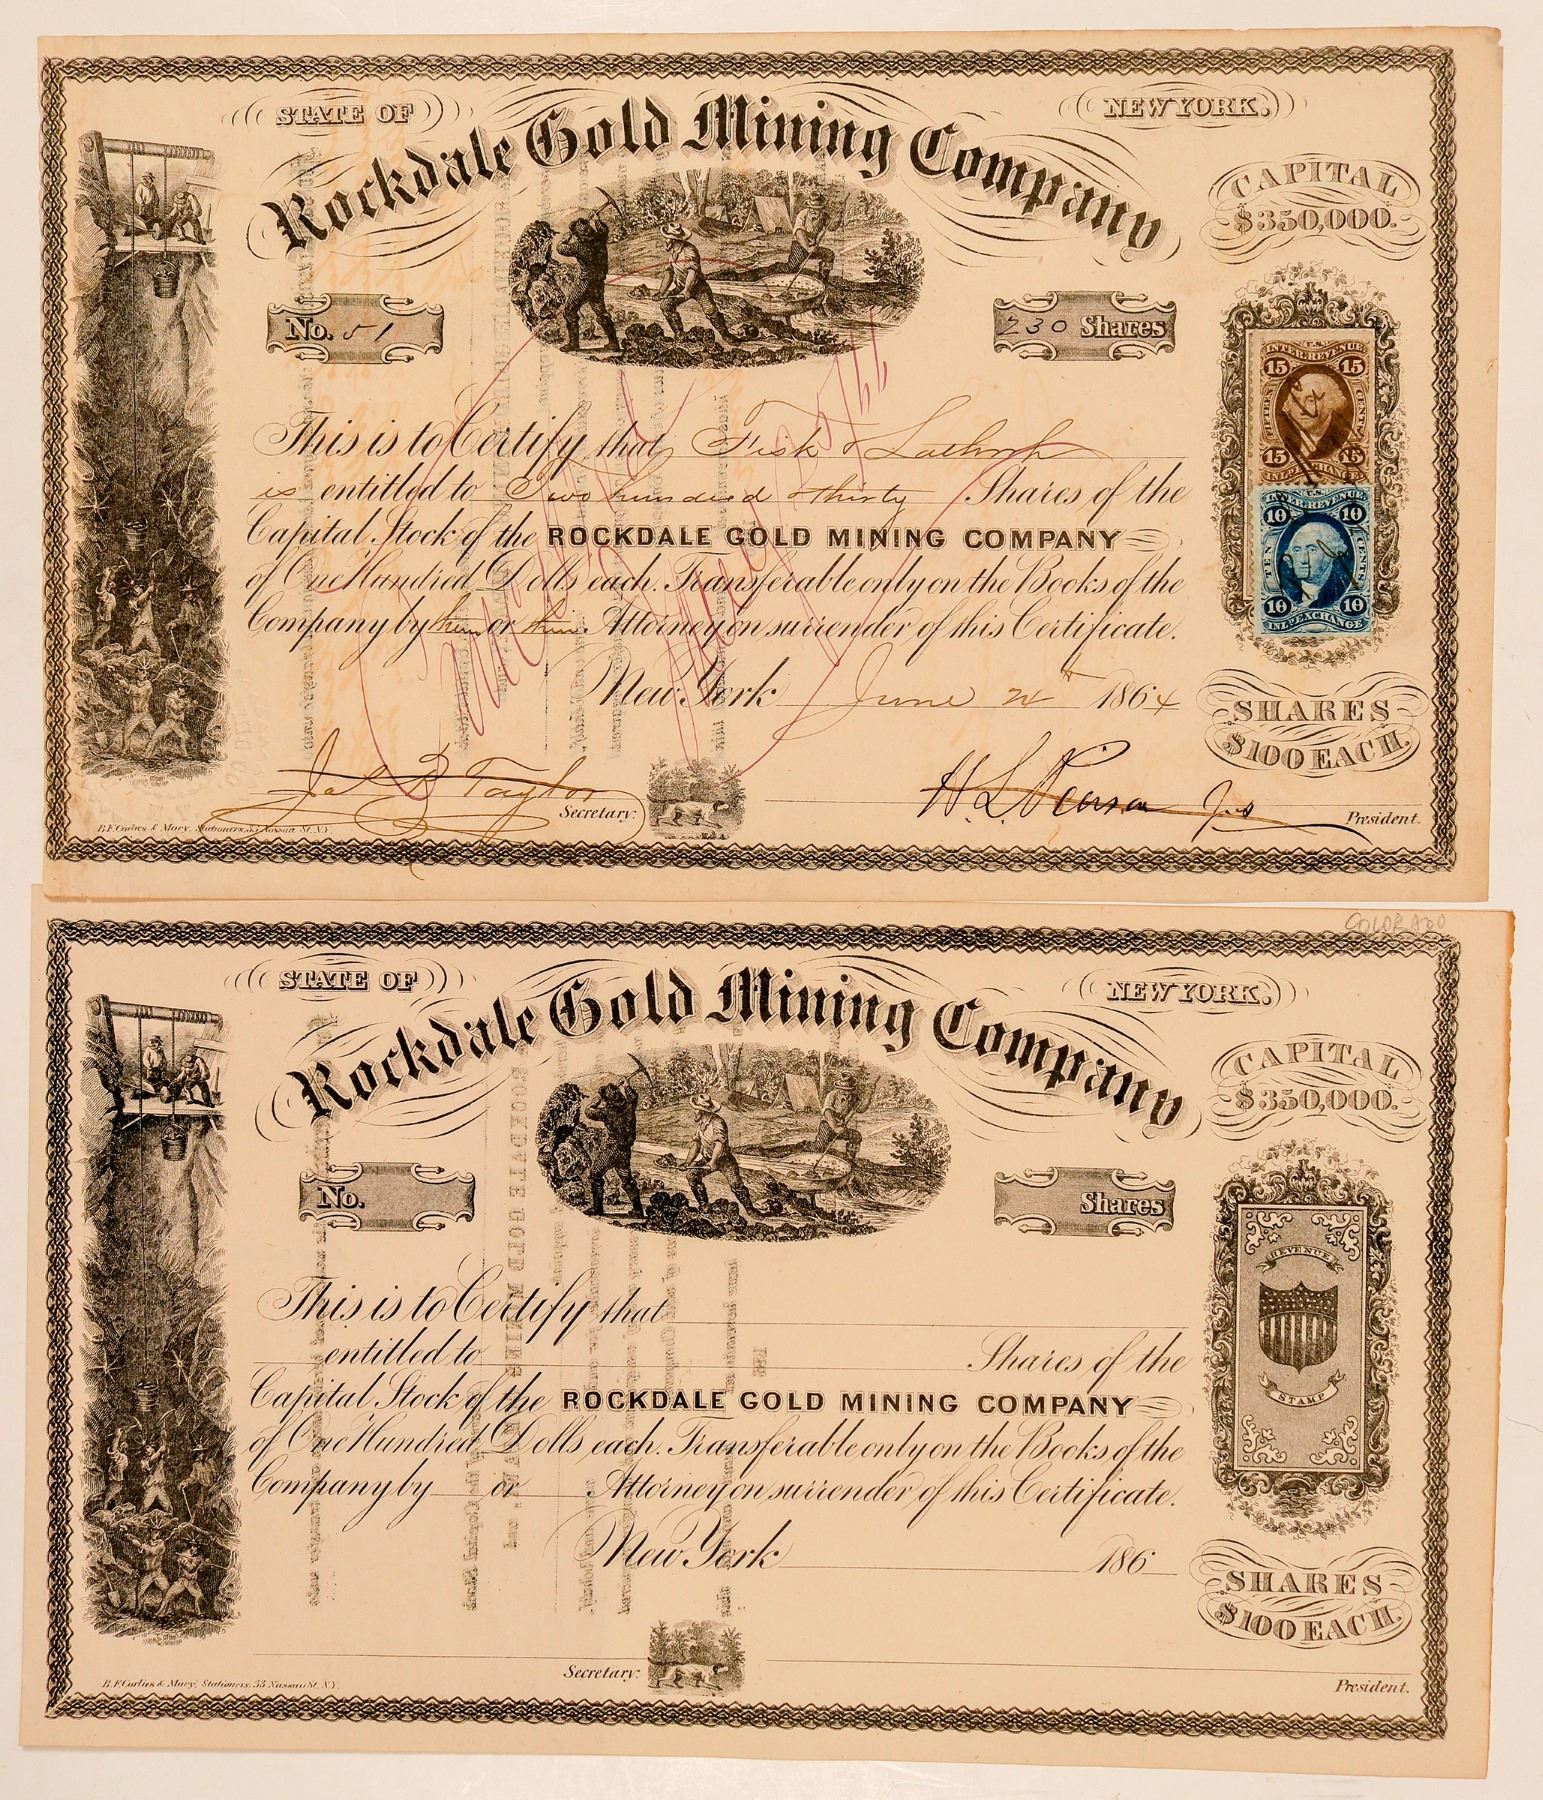 STATE OF
NEW YORK.
Rockdale Gold Mining Company
CAPITAL
$350,000.
No. 51
230 Shares
U.S.
INTER. REVENUE
15 15
FIFTEEN CENTS
15 15
INL'D EXCHANGE
This is to Certify that Fisk & Lathrop
is entitled to Two hundred & thirty Shares of the
Capital Stock of the ROCKDALE GOLD MINING COMPANY
of One Hundred Dolls each. Transferable only on the Books of the
Company by them or their Attorney on surrender of this Certificate.
U.S.
INTER. REVENUE
10 10
TEN CENTS
10 10
INL'D EXCHANGE
New York June 24th 1864
SHARES
$100 EACH.
Jas B Taylor Secretary.
H L Pierson Jr President.
B.F. Corlies & Macy, Stationers, 33 Nassau St. N.Y.
COLORADO
STATE OF
NEW YORK.
Rockdale Gold Mining Company
CAPITAL
$350,000.
No.
Shares
REVENUE
STAMP
This is to Certify that
entitled to Shares of the
Capital Stock of the ROCKDALE GOLD MINING COMPANY
of One Hundred Dolls each. Transferable only on the Books of the
Company by or Attorney on surrender of this Certificate.
New York 186
SHARES
$100 EACH.
Secretary.
President.
B.F. Corlies & Macy, Stationers, 33 Nassau St. N.Y.